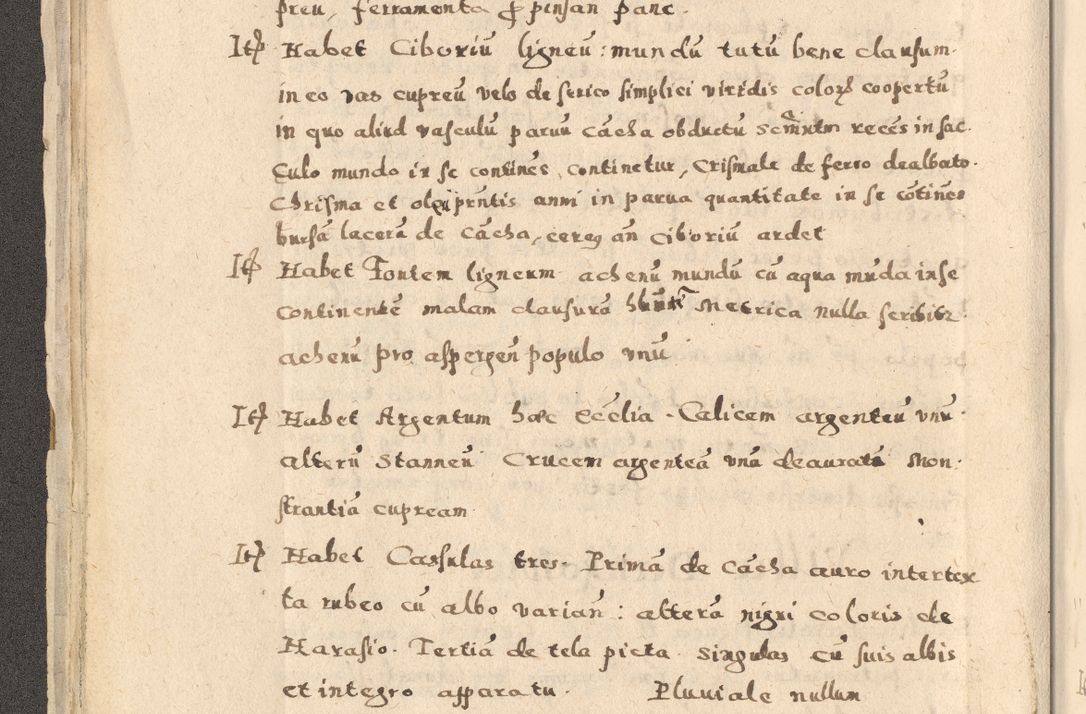 preu, ferramenta ꝓ pinsan pane.
Itꝫ Habet Ciboriū ligneū: mundū tutū bene clausum.
in eo vas cupreū velo de serico simplici viridis colorꝫ coopertū
in quo aliud vasculū paruū cācha obductū recēs in sac.
Culo mundo in se continēs, continetur, Crismale de ferro dealbato.
Chrisma et olei prn̄tis anni in parua quantitate in se cōtinēs
bursā lacerā de cācha, cereꝯ an̄ ciboriū ardet
Itꝫ Habet Fontem ligneum achenū mundū cū aqua mūda in se
continentē malam clausurā Metrica nulla scribitꝛ
achenū pro aspergen̄ populo vnū
Itꝫ Habet Argentum hæc Eccēlia. Calicem argenteū vnū.
alterū Stanneū Crucem argenteā vnā deauratā Mon.
strantiā cupream
Itꝫ Habet Cassulas tres. Primā de cācha auro intertex
ta rubeo cū albo varian̄: alterā nigri coloris de
Harasio. Tertiā de tela picta. Singulas cū suis albis
et integro apparatu. Pluuiale nullum